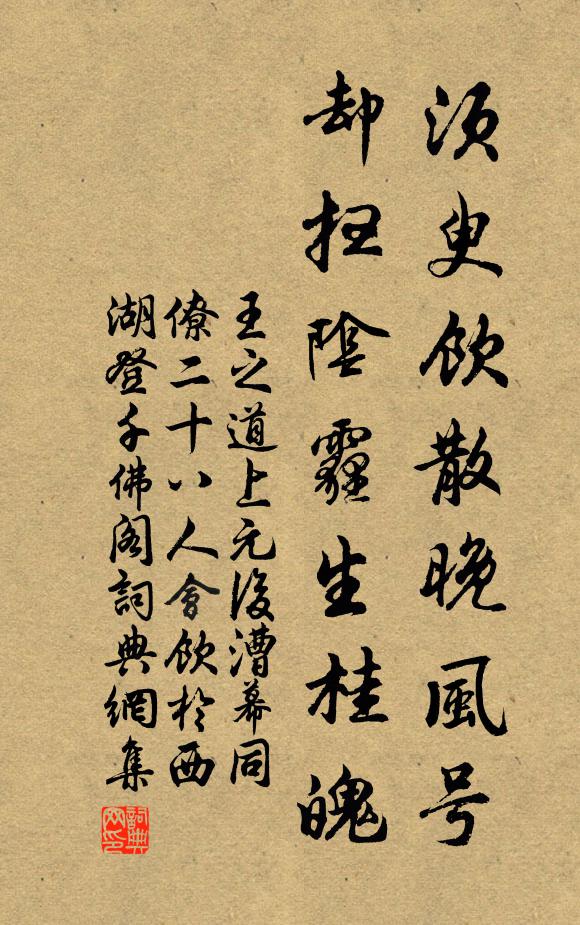 須臾飲散晚風号
却掃陰霾生桂魄
王之道上元後漕幕同
僚二十八人會飲於西
湖登千佛阁詞典網集
詞典网印